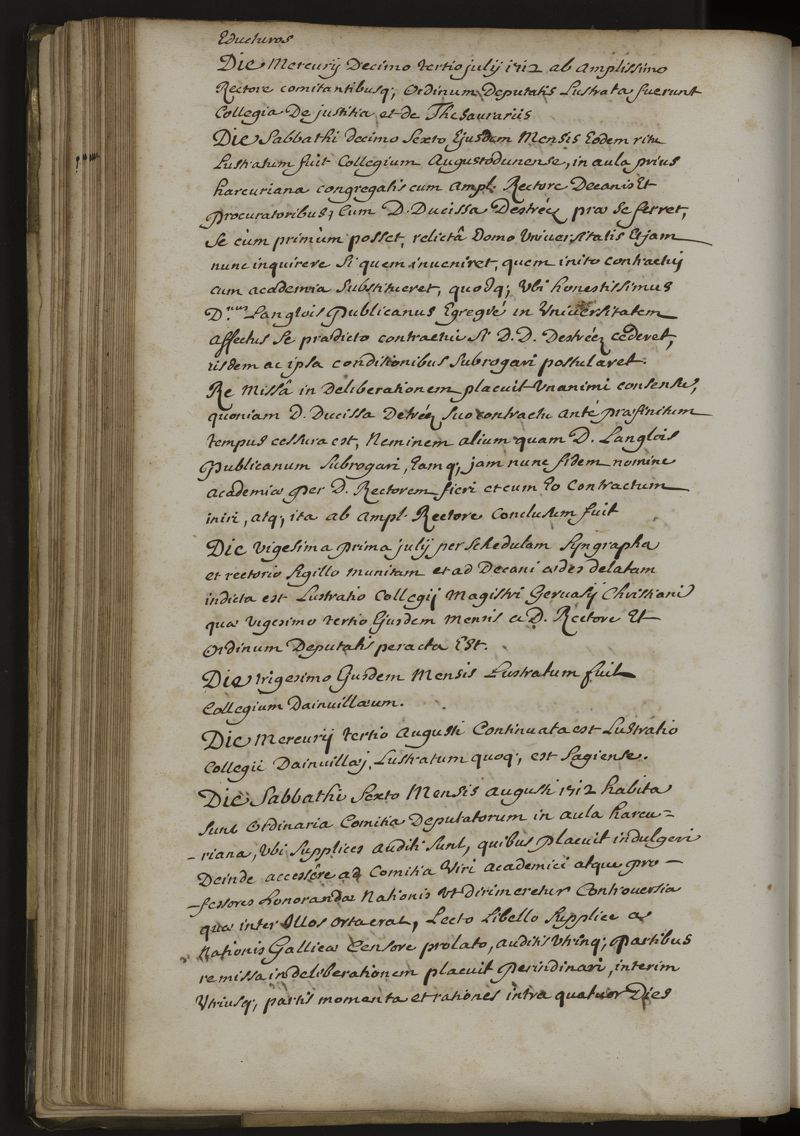 Educturos
Die Mercurij Decimo tertio julij 1712 ab Amplissimo
Rectore comitantibusq; Ordinum Deputatis Lustrata fuerunt
Collegia De justitia et de Thesaurariis
Die Sabbathi decimo Sexto Ejusdem Mensis Eodem ritu
Lustratum fuit Collegium Augustodunense, in aula prius
harcuriana congregatis cum Ampl. Rectore Decanis Et
Procuratoribus, Cum D. Ducissa Destréez præ se ferret,
se cùm primùm posset, relictâ Domo Universitatis Etjam
nunc inquirere si quem inveniret, quem inito contractu
cum academia Substitueret, quodq; Ubi honestissimus
D.nus Langlois Publicanus Egregiè in Universitatem
affectus se prædicto contractui si D.D. Destréez cederet,
iisdem ac ipsa conditionibus Subrogari postularet.
Re Missâ in Deliberationem placuit Unanimi consensu,
quoniam D. Ducissa Detréez suo contractu antè præfinitum
tempus cessura est, Neminem alium quam D. Langlois
Publicanum Subrogari, Eamq; jam nunc fidem nomine
academiæ per D. Rectorem fieri et cum Eo Contractum
iniri, atq; ita ab Ampl. Rectore Conclusum fuit
Die Vigesima prima julij per schedulam Syngrapha
et rectorio Sigillo munitam et ad Decani ædes delatam
indicta est Lustratio Collegij Magistri Gervasij Christiani
quæ Vigesimo tertio Ejusdem Mensis a D. Rectore Et
Ordinum Deputatis peracta Est.
Die trigesimo Ejusdem Mensis Lustratum fuit
Collegium Dainvillæum.
Die Mercurij tertio Augusti Continuata est Lustratio
Collegii Dainvillæj, Lustratum quoq; est Sagiense.
Die Sabbathi Sexto Mensis augusti 1712 habita
sunt Ordinaria Comitia Deputatorum in aula harcu=
-riana, Ubi Supplices auditi Sunt, quibus placuit indulgeri
Deinde accessêre ad Comitia Viri Academici atque pro-
-fessores honorandæ Nationis Ut dirimeretur Controversia
quæ inter Illos orta erat, Lecto Libello Supplice a
Nationis Gallicæ Censore prolato, auditis Utrinq; partibus
re missa in deliberationem placuit Perindinari, interim
Utriusq; partis momenta et rationes intra quatuor Dies